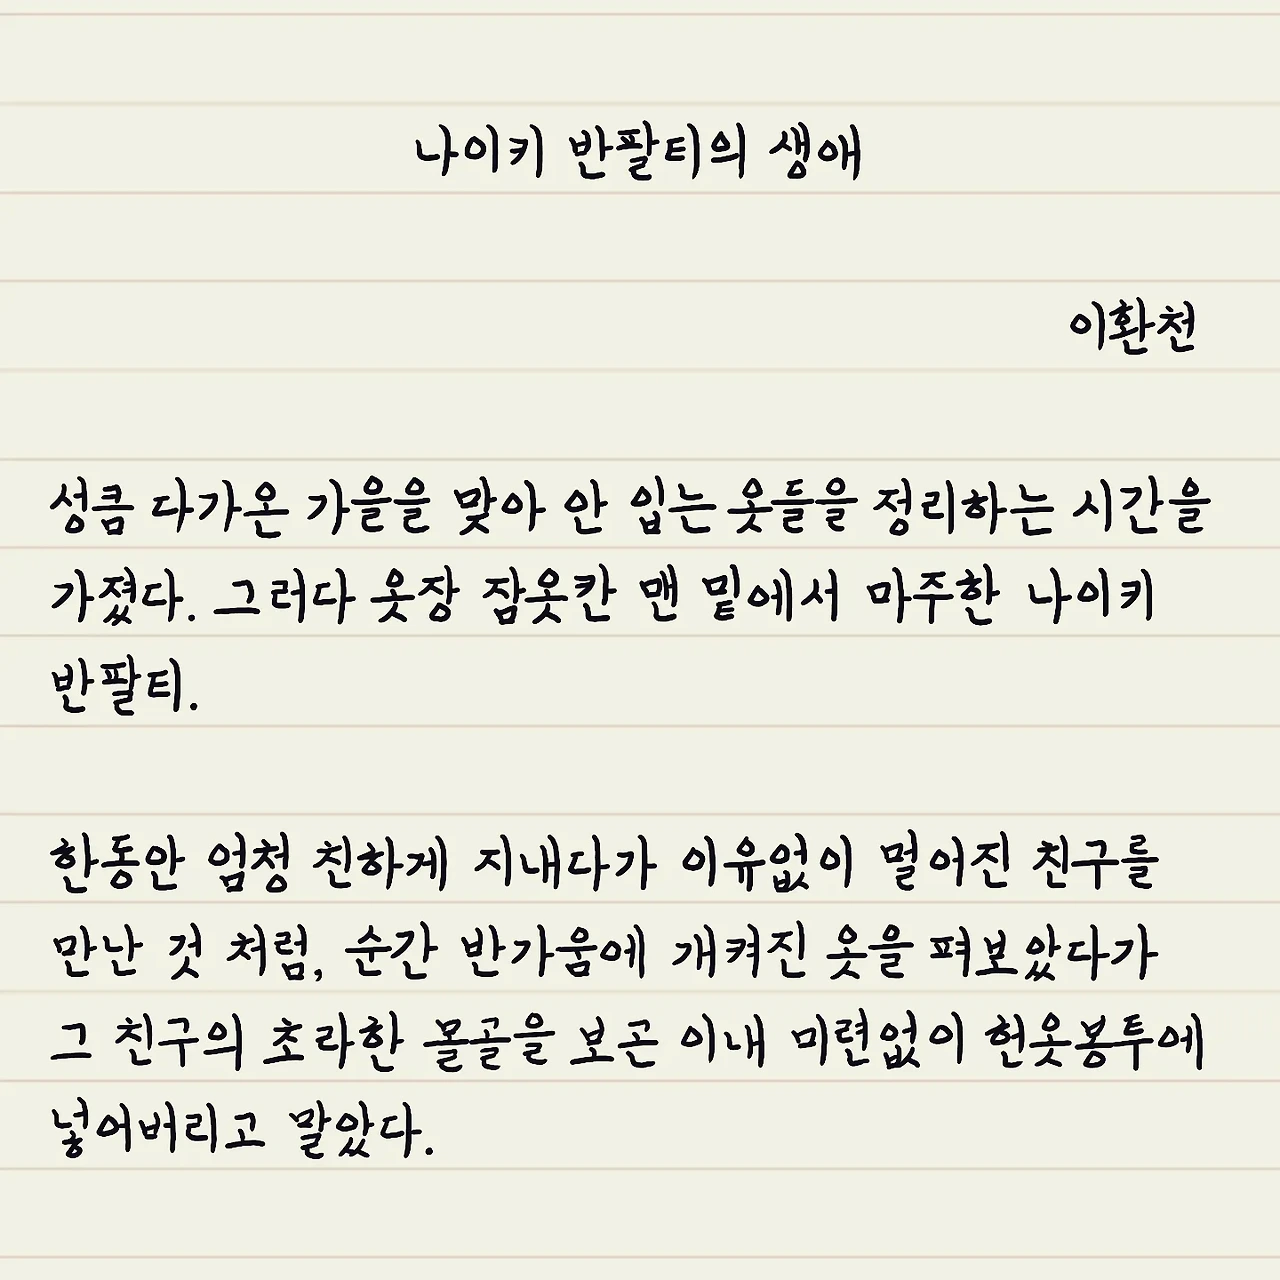 나이키 반팔티의 생애
이환천
성큼 다가온 가을을 맞아 안 입는 옷들을 정리하는 시간을
가졌다. 그러다 옷장 잠옷칸 맨 밑에서 마주한 나이키
반팔티.
한동안 엄청 친하게 지내다가 이유없이 멀어진 친구를
만난 것 처럼, 순간 반가움에 개켜진 옷을 펴보았다가
그 친구의 초라한 몰골을 보곤 이내 미련없이 헌옷봉투에
넣어버리고 말았다.